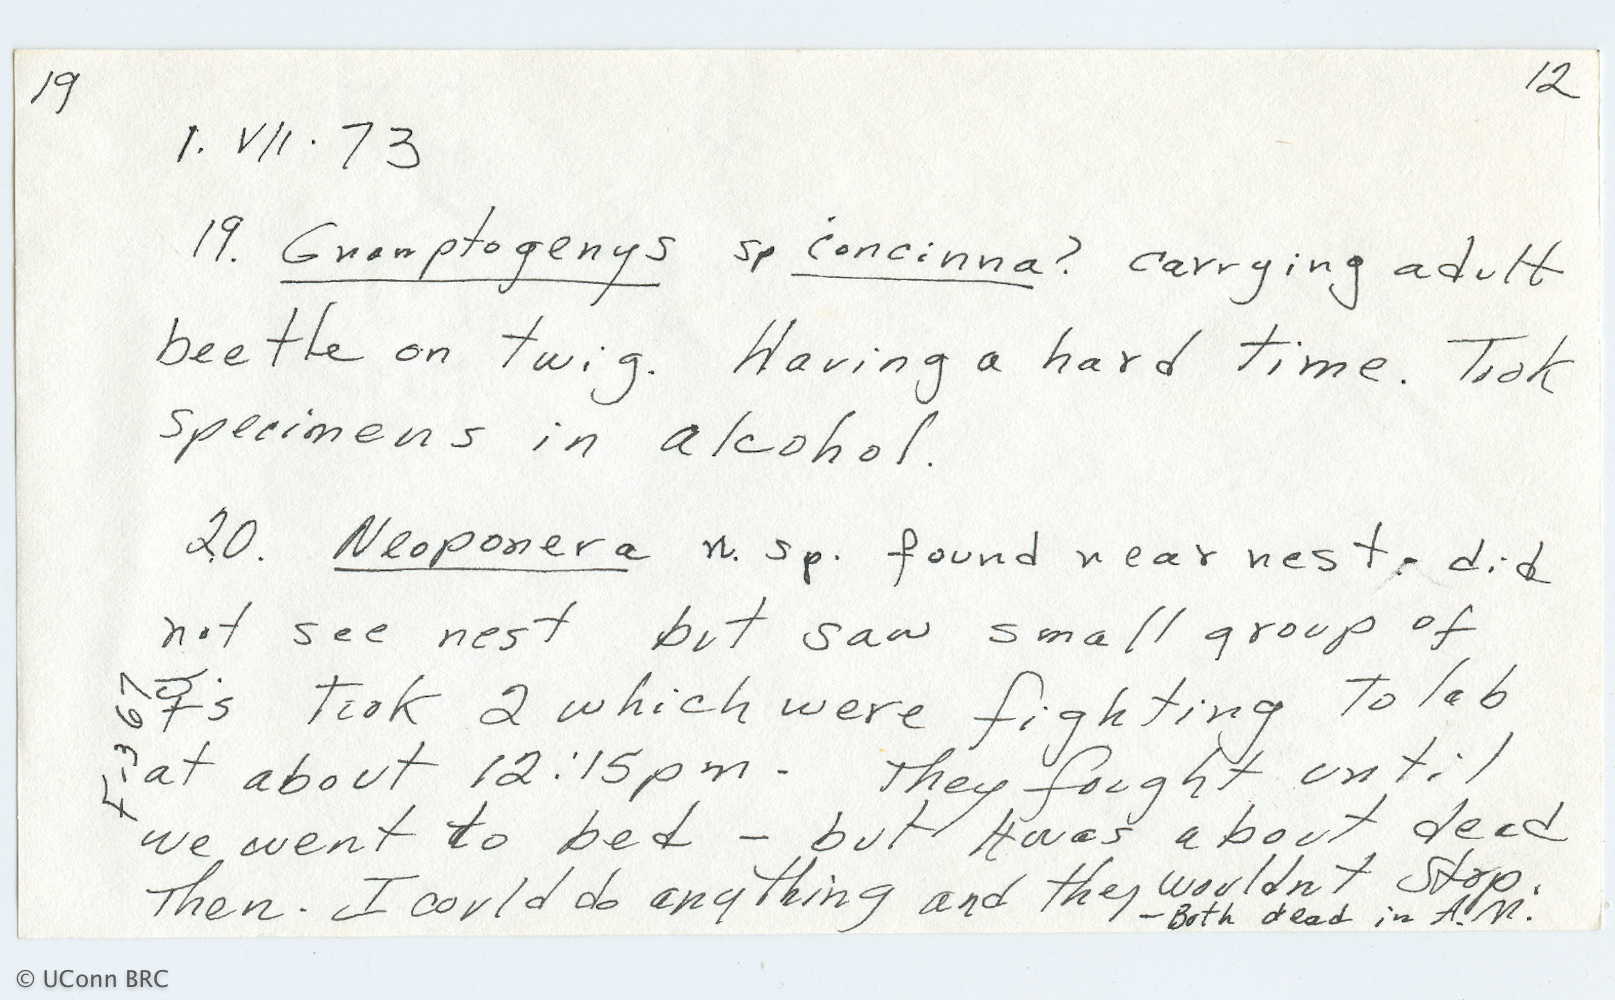 19
12
1. VII. 73
19. Gnamptogenys sp concinna? carrying adult
beetle on twig. Having a hard time. Took
specimens in alcohol.
20. Neoponera n. sp. found near nest. did
not see nest but saw small group of
☿'s Took 2 which were fighting To lab
at about 12:15pm. They fought until
we went to bed – but 1 was about dead
Then. I could do anything and they wouldnt stop.
– Both dead in A.M.
F-367
© UConn BRC